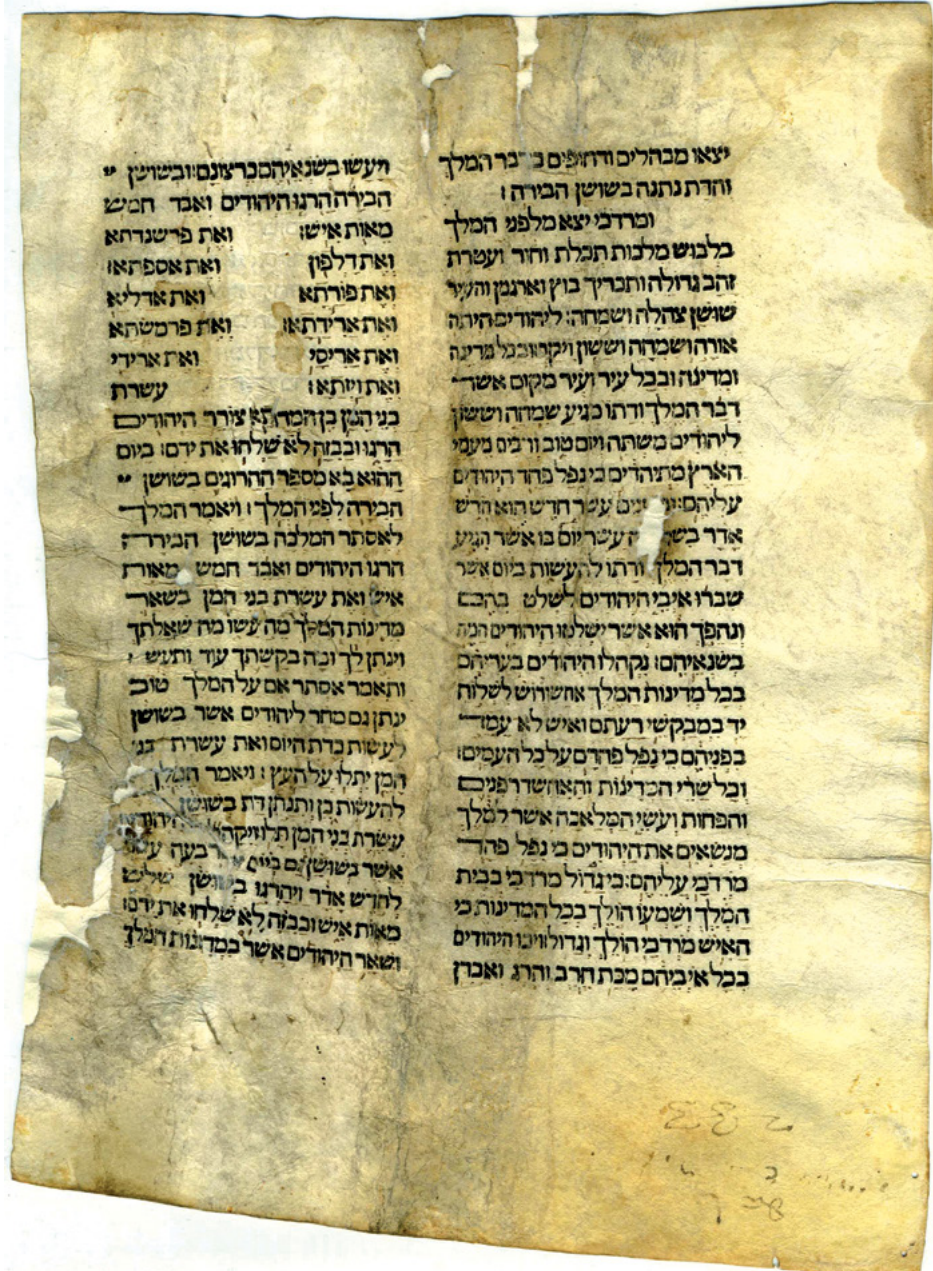 יצאו מבהלים ודחופים בדבר המלך
והדת נתנה בשושן הבירה:
ומרדכי יצא מלפני המלך
בלבוש מלכות תכלת וחור ועטרת
זהב גדולה ותכריך בוץ וארגמן והעיר
שושן צהלה ושמחה: ליהודים היתה
אורה ושמחה וששון ויקר: ובכל מדינה
ומדינה ובכל עיר ועיר מקום אשר
דבר המלך ודתו מגיע שמחה וששון
ליהודים משתה ויום טוב ורבים מעמי
הארץ מתיהדים כי נפל פחד היהודים
עליהם: עשר חדש הוא חדש
אדר עשר יום בו אשר הגיע
דבר המלך ודתו להעשות ביום אשר
שברו איבי היהודים לשלט בהם
ונהפך הוא אשר ישלטו היהודים המה
בשנאיהם: נקהלו היהודים בעריהם
בכל מדינות המלך אחשורוש לשלוח
יד במבקשי רעתם ואיש לא עמד
בפניהם כי נפל פחדם על כל העמים:
וכל שרי המדינות והאחשדרפנים
והפחות ועשי המלאכה אשר למלך
מנשאים את היהודים כי נפל פחד
מרדכי עליהם: כי גדול מרדכי בבית
המלך ושמעו הולך בכל המדינות כי
האיש מרדכי הולך וגדול: ויכו היהודים
בכל איביהם מכת חרב והרג ואבדן
ויעשו בשנאיהם כרצונם: ובשושן
הבירה הרגו היהודים ואבד חמש
מאות איש: ואת פרשנדתא
ואת דלפון ואת אספתא:
ואת פורתא ואת אדליא
ואת ארידתא: ואת פרמשתא
ואת אריסי ואת ארידי
ואת ויזתא: עשרת
בני המן בן המדתא צורר היהודים
הרגו ובבזה לא שלחו את ידם: ביום
ההוא בא מספר ההרוגים בשושן
הבירה לפני המלך: ויאמר המלך
לאסתר המלכה בשושן הבירה
הרגו היהודים ואבד חמש מאות
איש ואת עשרת בני המן בשאר
מדינות המלך מה עשו מה שאלתך
וינתן לך ומה בקשתך עוד ותעש
ותאמר אסתר אם על המלך טוב
ינתן גם מחר ליהודים אשר בשושן
לעשות כדת היום ואת עשרת בני
המן יתלו על העץ: ויאמר המלך
להעשות כן ותנתן דת בשושן
עשרת בני המן תלו: ויקהלו היהודים
אשר בשושן גם ביום ארבעה עשר
לחדש אדר ויהרגו בשושן שלש
מאות איש ובבזה לא שלחו את ידם:
ושאר היהודים אשר במדינות המלך